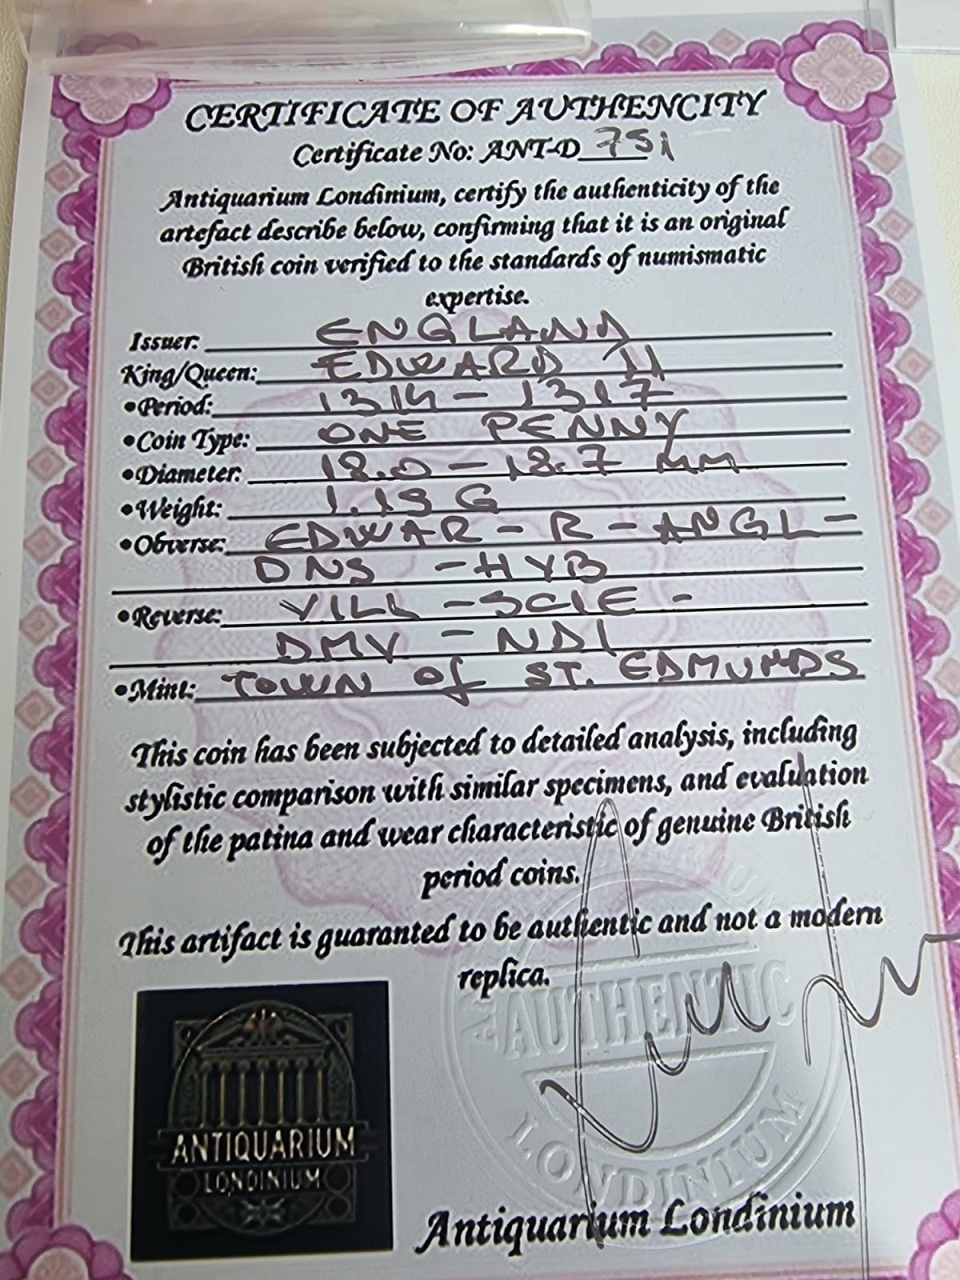 CERTIFICATE OF AUTHENCITY
Certificate No: ANT-D 751
Antiquarium Londinium, certify the authenticity of the
artefact describe below, confirming that it is an original
British coin verified to the standards of numismatic
expertise.
Issuer: ENGLAND
King/Queen: EDWARD II
•Period: 1314 - 1317
•Coin Type: ONE PENNY
•Diameter: 18.0 - 18.7 MM
•Weight: 1.19 G
•Obverse: EDWAR - R - ANGL -
DNS - HYB
•Reverse: VILL - SCIE -
DMV - NDI
•Mint: TOWN of ST. EDMUNDS
This coin has been subjected to detailed analysis, including
stylistic comparison with similar specimens, and evaluation
of the patina and wear characteristic of genuine British
period coins.
This artifact is guaranted to be authentic and not a modern
replica.
AUTHENTIC
LONDINIUM
ANTIQUARIUM
LONDINIUM
Antiquarium Londinium